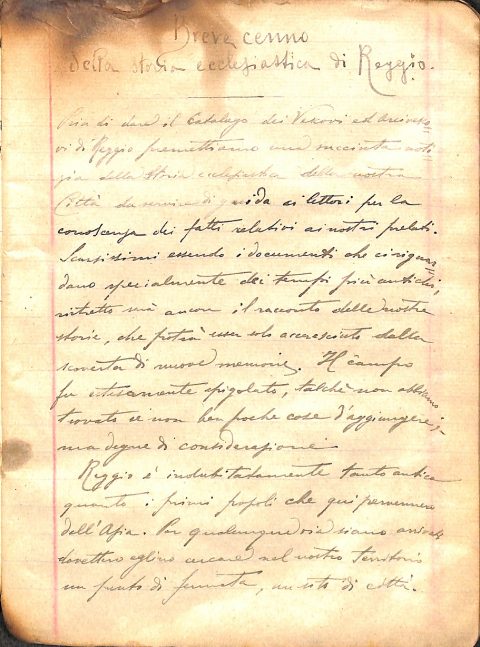 Breve cenno
della storia ecclesiastica di Reggio.
Pria di dare il Catalogo dei Vescovi ed Arcivesco
vi di Reggio premettiamo una succinta noti
zia della Storia ecclesiastica della nostra
Città da servire di guida ai lettori per la
conoscenza dei fatti relativi ai nostri prelati.
Scarsissimi essendo i documenti che ci riguar
dano specialmente dei tempi più antichi,
ristretto sarà ancora il racconto delle nostre
storie, che potrà esser solo accresciuto dalla
scoverta di nuove memorie. Il campo
fu estesamente spigolato, talchè non abbiamo
trovato se non ben poche cose d'aggiungere,
ma degne di considerazione.
Reggio è indubitatamente tanto antica
quanto i primi popoli che qui pervennero
dall'Asia. Per qualunque via siano arrivati
dovettero eglino cercare nel nostro territorio
un punto di fermata, un sito di città.